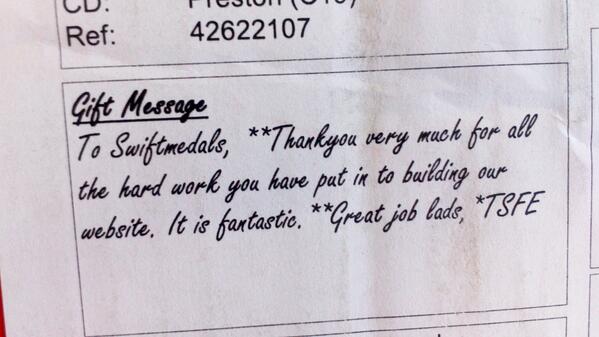 CD: Preston
Ref: 42622107
Gift Message
To Swiftmedals, **Thankyou very much for all
the hard work you have put in to building our
website. It is fantastic. **Great job lads, *TSFE